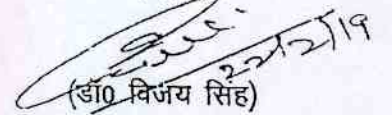 22/2/19
(डॉ0 विजय सिंह)